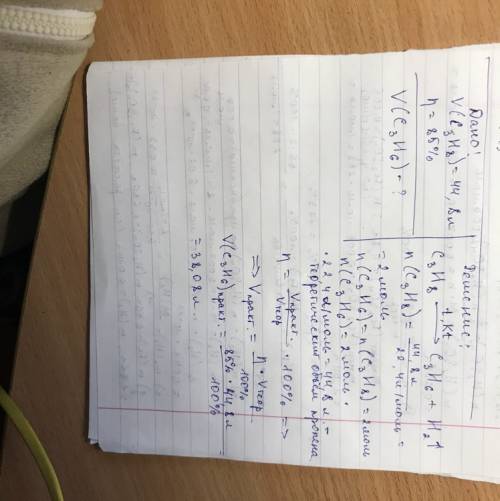 Дано:
V(C₃H₈)=44,8л
η=85%
V(C₃H₆)-?
Решение:
C₃H₈ →(t,Kt) C₃H₆ + H₂↑
n(C₃H₈) = 44,8л / 22,4л/моль =
= 2 моль
n(C₃H₆) = n(C₃H₈) = 2моль
n(C₃H₆) = 2 моль ·
· 22,4 л/моль = 44,8 л. –
теоретический объём пропена
η = Vпракт. / Vтеор · 100% =>
=> Vпракт. = η · Vтеор / 100%
V(C₃H₆)практ. = 85% · 44,8л / 100% =
= 38,08л.